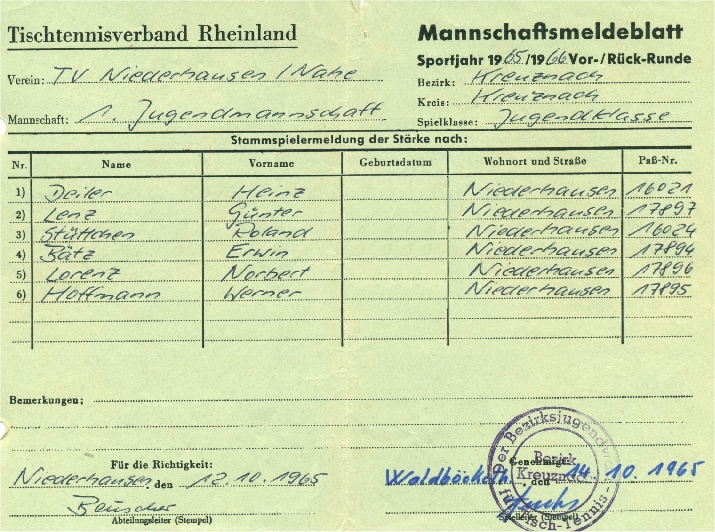 Tischtennisverband Rheinland
Mannschaftsmeldeblatt
Sportjahr 1965/1966 Vor-/Rück-Runde
Verein: TV Niederhausen / Nahe
Bezirk: Kreuznach
Kreis: Kreuznach
Mannschaft: 1. Jugendmannschaft
Spielklasse: Jugendklasse
Stammspielermeldung der Stärke nach:
Nr. Name Vorname Geburtsdatum Wohnort und Straße Paß-Nr.
1) Deiler Heinz Niederhausen 16021
2) Lenz Günter Niederhausen 17897
3) Stüttchen Roland Niederhausen 16024
4) Bätz Erwin Niederhausen 17894
5) Lorenz Norbert Niederhausen 17896
6) Hoffmann Werner Niederhausen 17895
Bemerkungen:
Für die Richtigkeit:
Niederhausen, den 12.10.1965
Beuscher
Abteilungsleiter (Stempel)
Der Bezirksjugendwart
Bezirk
Kreuznach
Tisch-Tennis
Genehmigt:
den 14.10.1965
Fuchs
Spielleiter (Stempel)